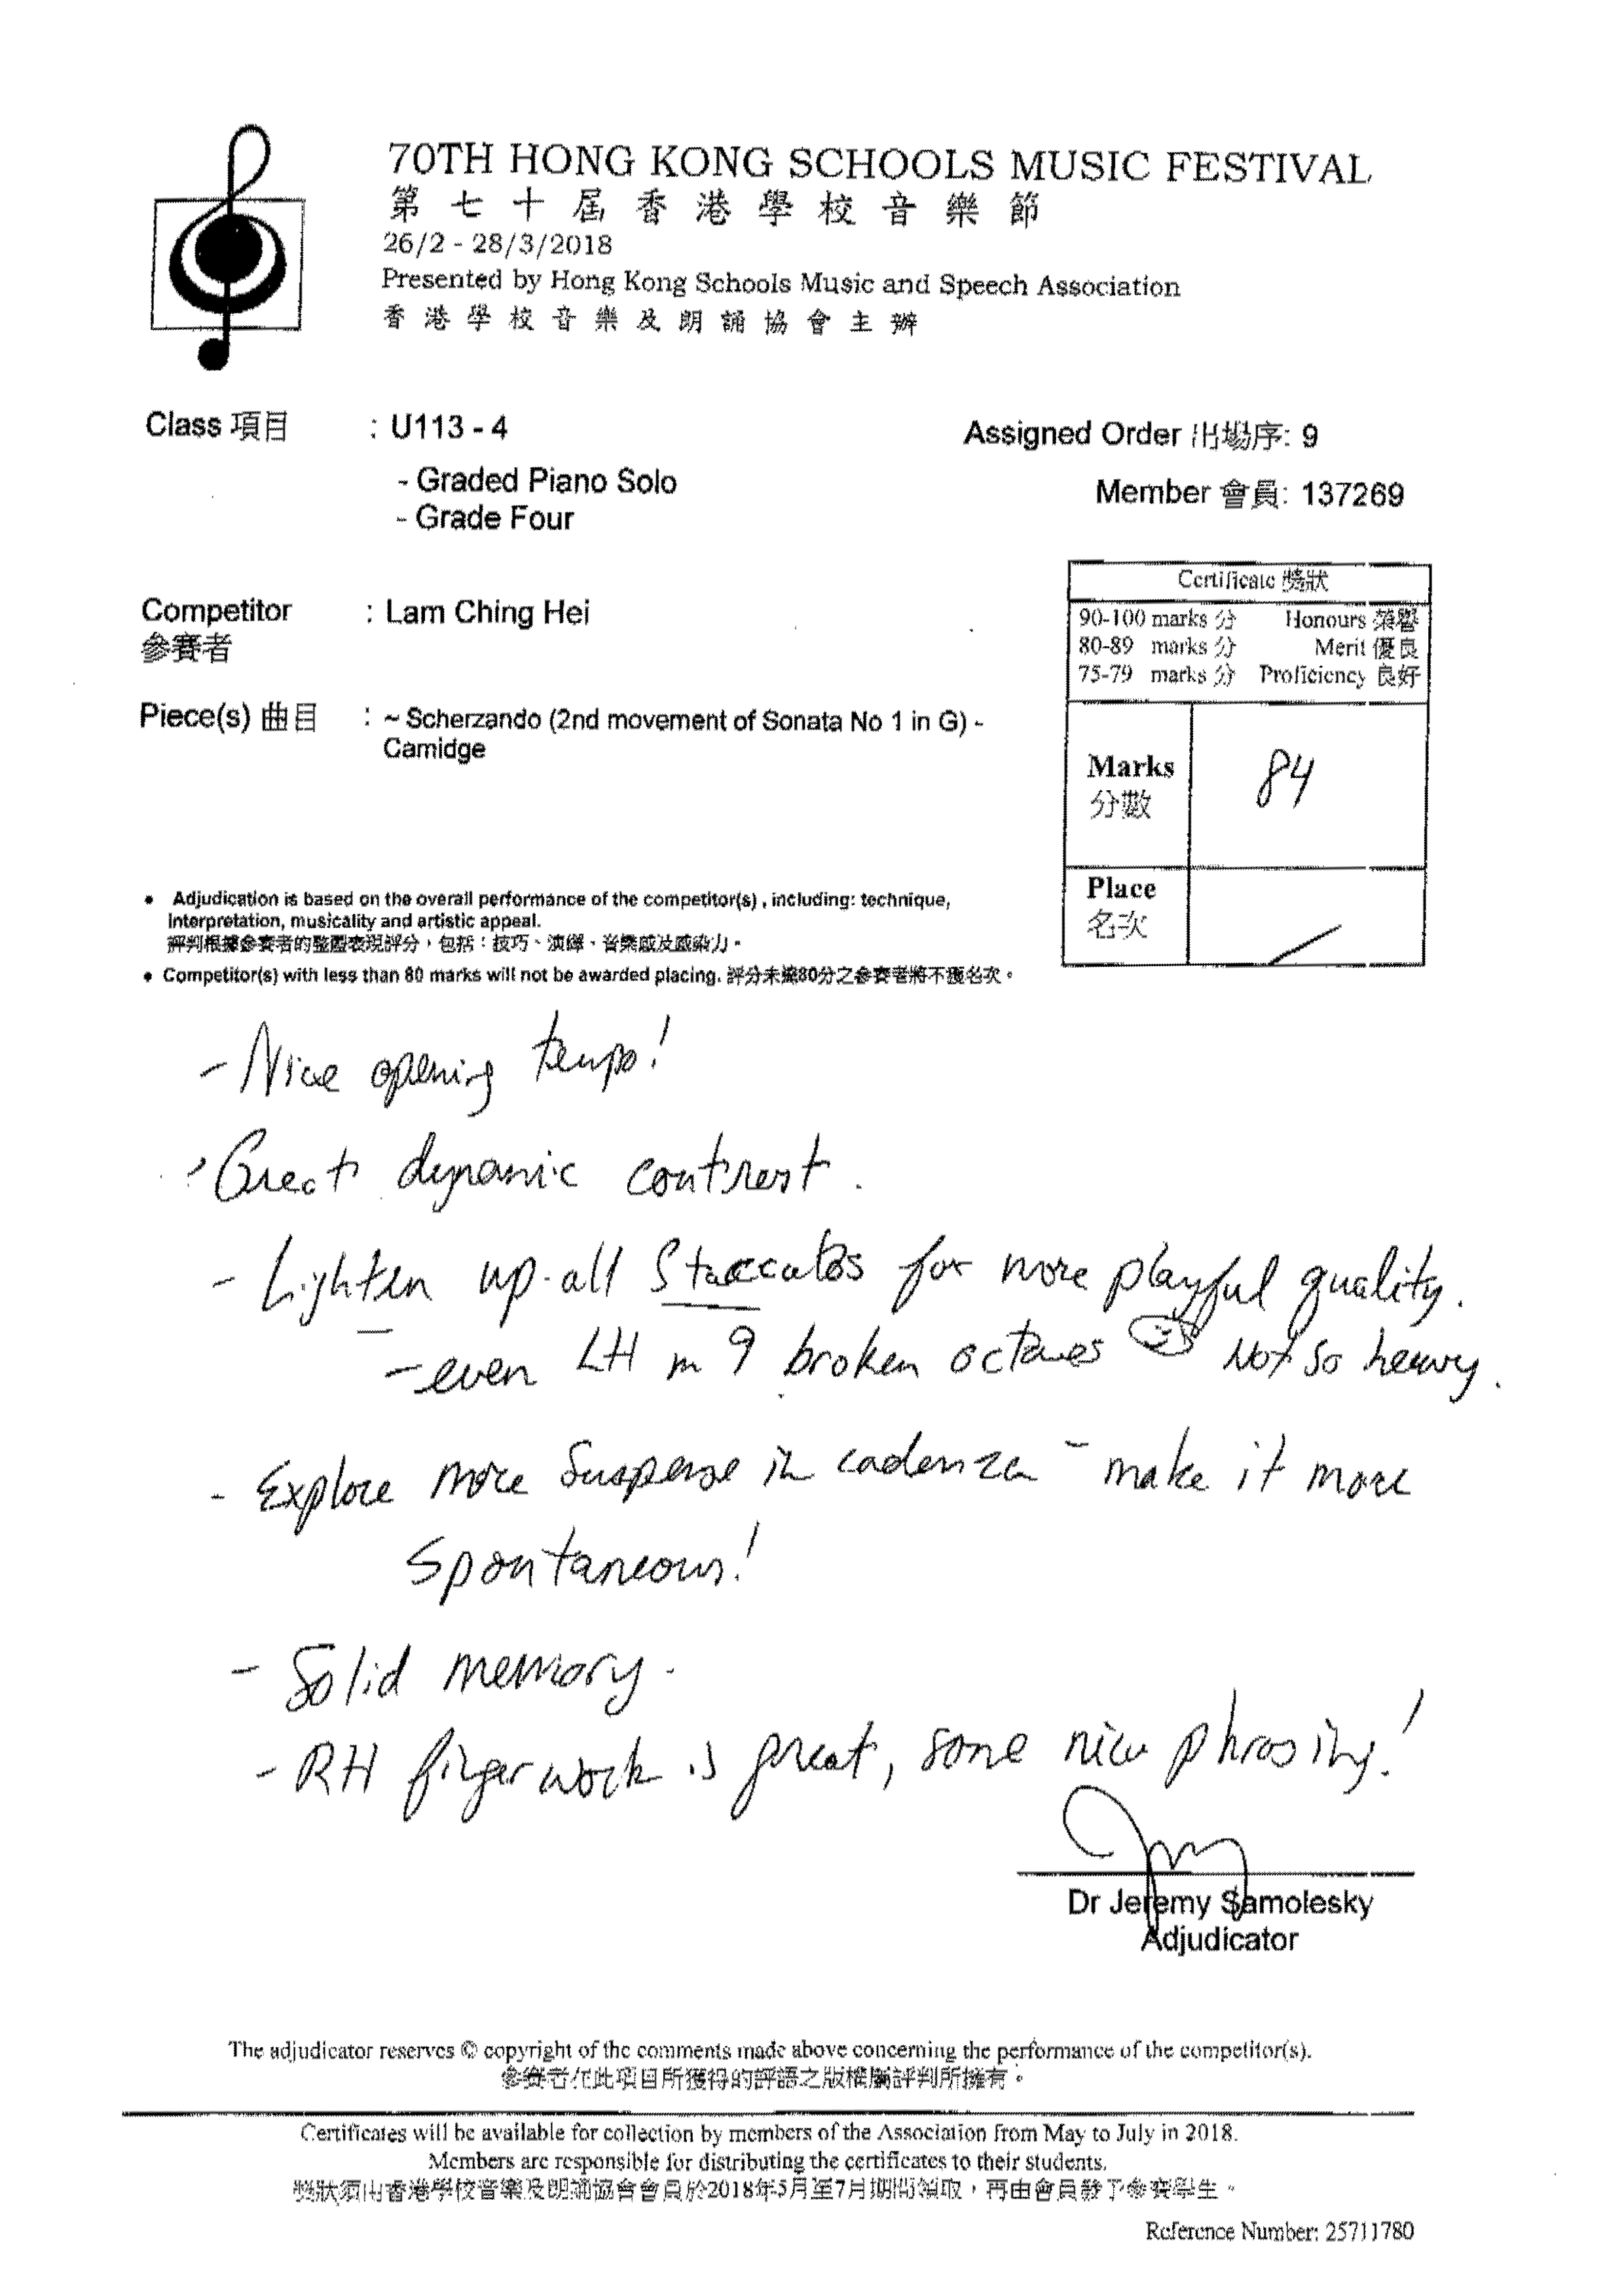 70TH HONG KONG SCHOOLS MUSIC FESTIVAL
第七十屆香港學校音樂節
26/2 - 28/3/2018
Presented by Hong Kong Schools Music and Speech Association
香港學校音樂及朗誦協會主辦
Class 項目 : U113 - 4
- Graded Piano Solo
- Grade Four
Assigned Order 出場序: 9
Member 會員: 137269
Competitor : Lam Ching Hei
參賽者
Piece(s) 曲目 : ~ Scherzando (2nd movement of Sonata No 1 in G) -
Camidge
Certificate 獎狀
90-100 marks 分 Honours 榮譽
80-89 marks 分 Merit 優良
75-79 marks 分 Proficiency 良好
Marks 84
分數
Place
名次
• Adjudication is based on the overall performance of the competitor(s), including: technique,
interpretation, musicality and artistic appeal.
評判根據參賽者的整體表現評分，包括：技巧、演繹、音樂感及感染力。
• Competitor(s) with less than 80 marks will not be awarded placing. 評分未達80分之參賽者將不獲名次。
- Nice opening tempo!
- Great dynamic contrast.
- Lighten up all staccatos for more playful quality.
- even LH m 9 broken octaves Not so heavy.
- Explore more suspense in cadenza - make it more
spontaneous!
- Solid memory.
- RH fingerwork is great, some nice phrasing!
Dr Jeremy Samolesky
Adjudicator
The adjudicator reserves © copyright of the comments made above concerning the performance of the competitor(s).
參賽者在此項目所獲得的評語之版權屬評判所擁有。
Certificates will be available for collection by members of the Association from May to July in 2018.
Members are responsible for distributing the certificates to their students.
獎狀須由香港學校音樂及朗誦協會會員於2018年5月至7月期間領取，再由會員發予參賽學生。
Reference Number: 25711780